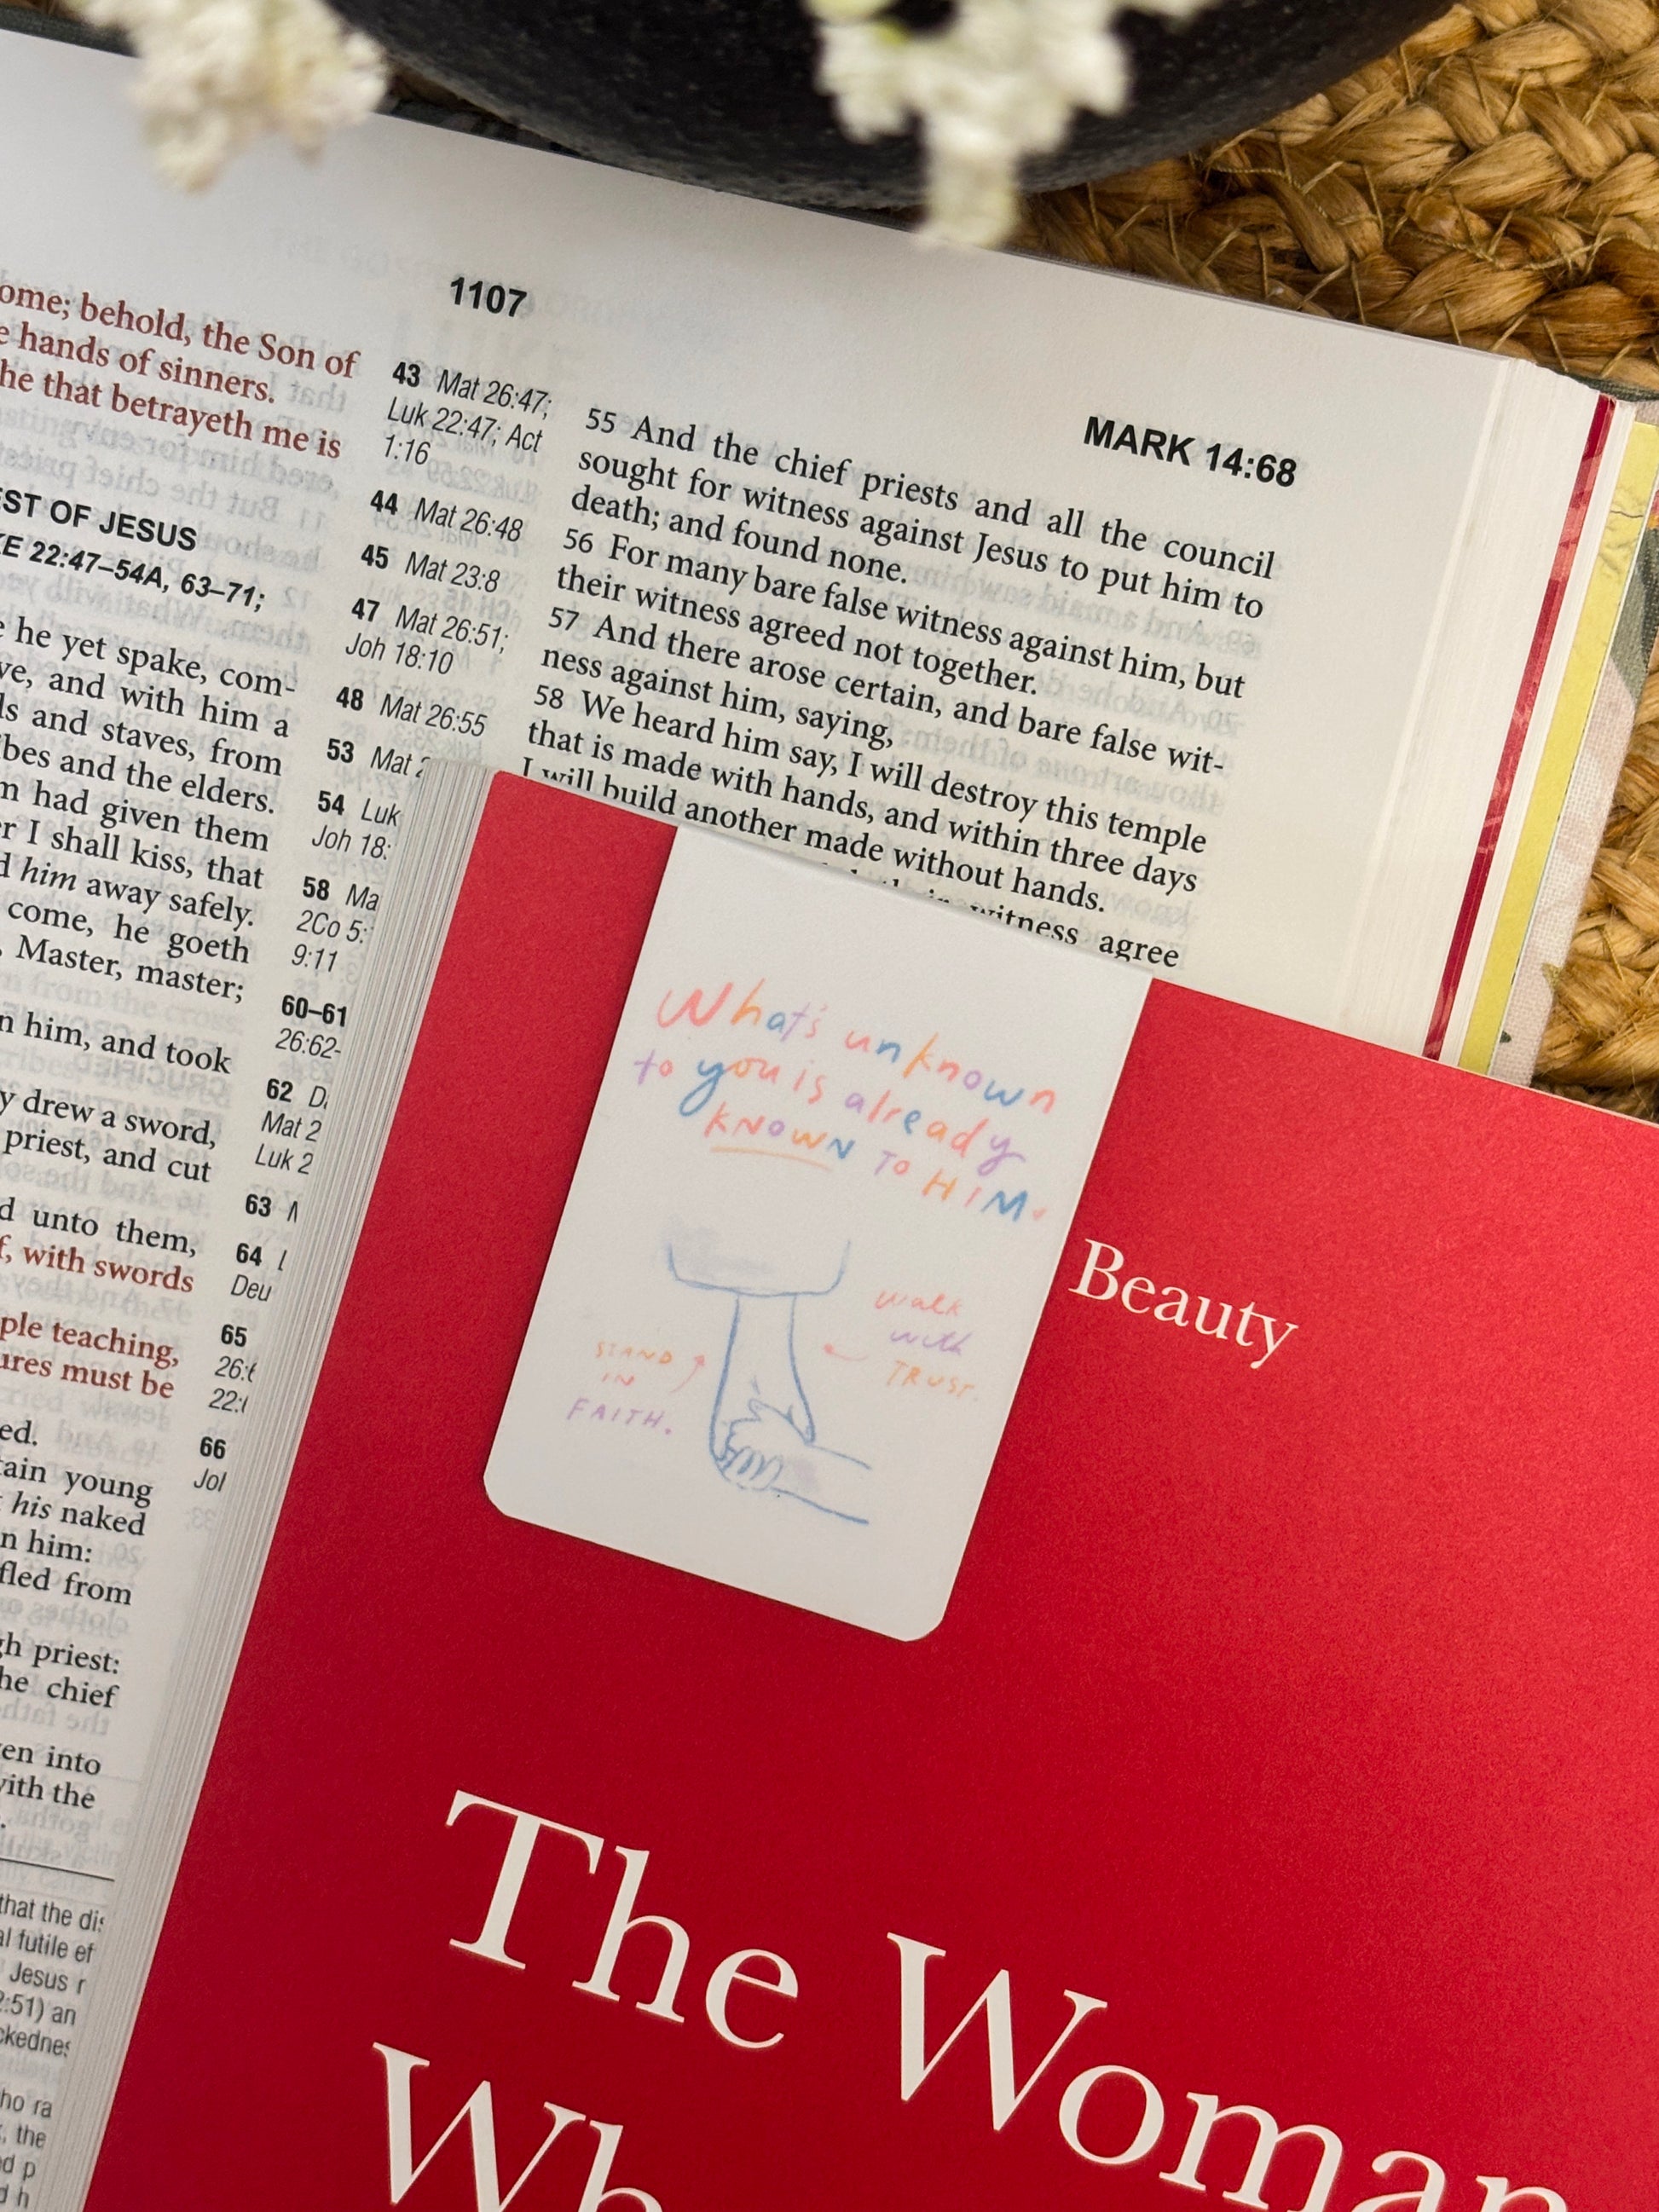 1107
MARK 14:68
ome; behold, the Son of
hands of sinners.
he that betrayeth me is
EST OF JESUS
KE 22:47–54A, 63–71;
he yet spake, com-
ve, and with him a
ds and staves, from
ibes and the elders.
m had given them
er I shall kiss, that
d him away safely.
come, he goeth
, Master, master;
n him, and took
y drew a sword,
priest, and cut
d unto them,
f, with swords
ple teaching,
ures must be
ed.
tain young
his naked
n him:
fled from
gh priest:
he chief
en into
with the
that the dis
al futile ef
Jesus r
2:51) an
ckednes
ho ra
, the
d p
d h
43 Mat 26:47;
Luk 22:47; Act
1:16
44 Mat 26:48
45 Mat 23:8
47 Mat 26:51;
Joh 18:10
48 Mat 26:55
53 Mat 2
54 Luk
Joh 18:
58 Ma
2Co 5:
9:11
60–61
26:62-
62 D
Mat 2
Luk 2
63 M
64
Deu
65
26:6
22:6
66
Jol
55 And the chief priests and all the council
sought for witness against Jesus to put him to
death; and found none.
56 For many bare false witness against him, but
their witness agreed not together.
57 And there arose certain, and bare false wit-
ness against him, saying,
58 We heard him say, I will destroy this temple
that is made with hands, and within three days
I will build another made without hands.
witness agree
What's unknown
to you is already
KNOWN TO HIM.
WALK
with
TRUST.
STAND
IN
FAITH.
Beauty
The Woman
Wh